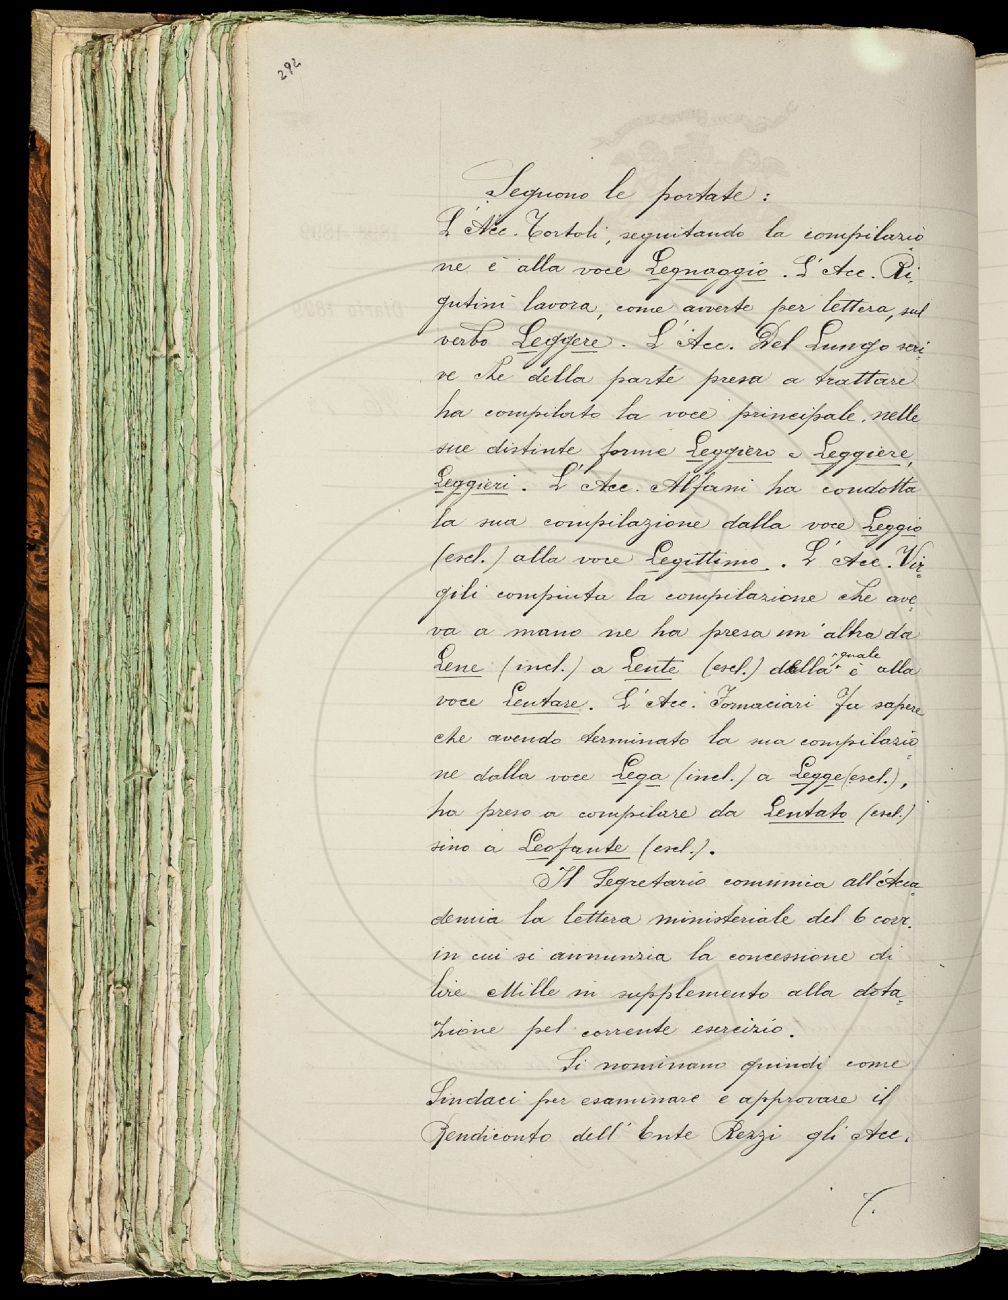 292
Seguono le portate:
L'Acc. Tortoli, seguitando la compilazio=
ne è alla voce Legnaggio. L'Acc. Ri=
gutini lavora, come avverte per lettera, sul
verbo Leggere. L'Acc. Del Lungo scri=
ve che della parte presa a trattare
ha compilato la voce principale, nelle
sue distinte forme Leggiero e Leggiere,
Leggieri. L'Acc. Alfani ha condotta
la sua compilazione dalla voce Leggio
(escl.) alla voce Legittimo. L'Acc. Vir=
gili compiuta la compilazione che ave=
va a mano ne ha presa un'altra da
Lene (incl.) a Lente (escl.) della quale è alla
voce Lentare. L'Acc. Fornaciari fa sapere
che avendo terminato la sua compilazio=
ne dalla voce Lega (incl.) a Legge (escl.),
ha preso a compilare da Lentato (escl.)
sino a Leofante (escl.).
Il Segretario comunica all'Acca=
demia la lettera ministeriale del 6 corr.
in cui si annunzia la concessione di
lire Mille in supplemento alla dota=
zione pel corrente esercizio.
Si nominano quindi come
Sindaci per esaminare e approvare il
Rendiconto dell'Ente Rezzi gli Acc.